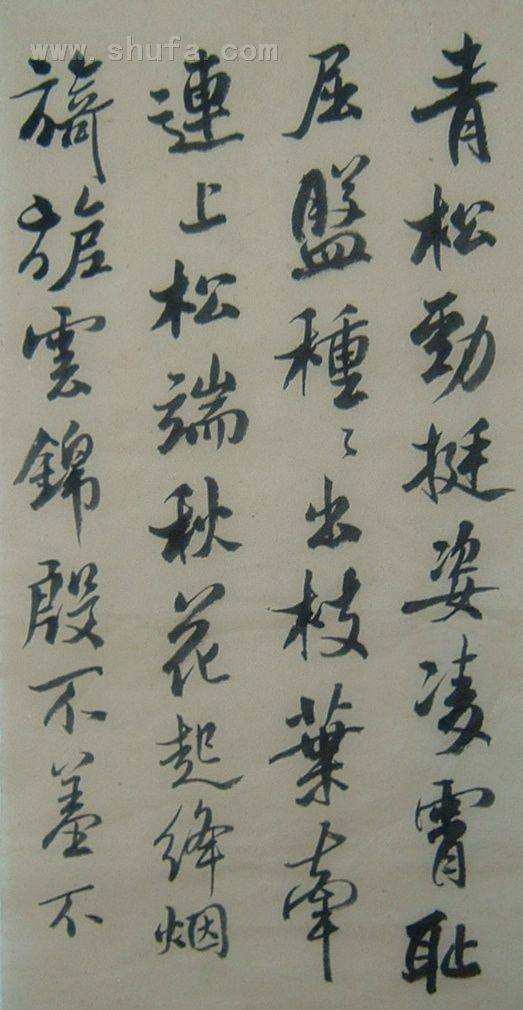 www.shufa.com
青松勁挺姿凌霄恥
屈盤種〻出枝葉牽
連上松端秋花起絳烟
旖旎雲錦殷不羞不